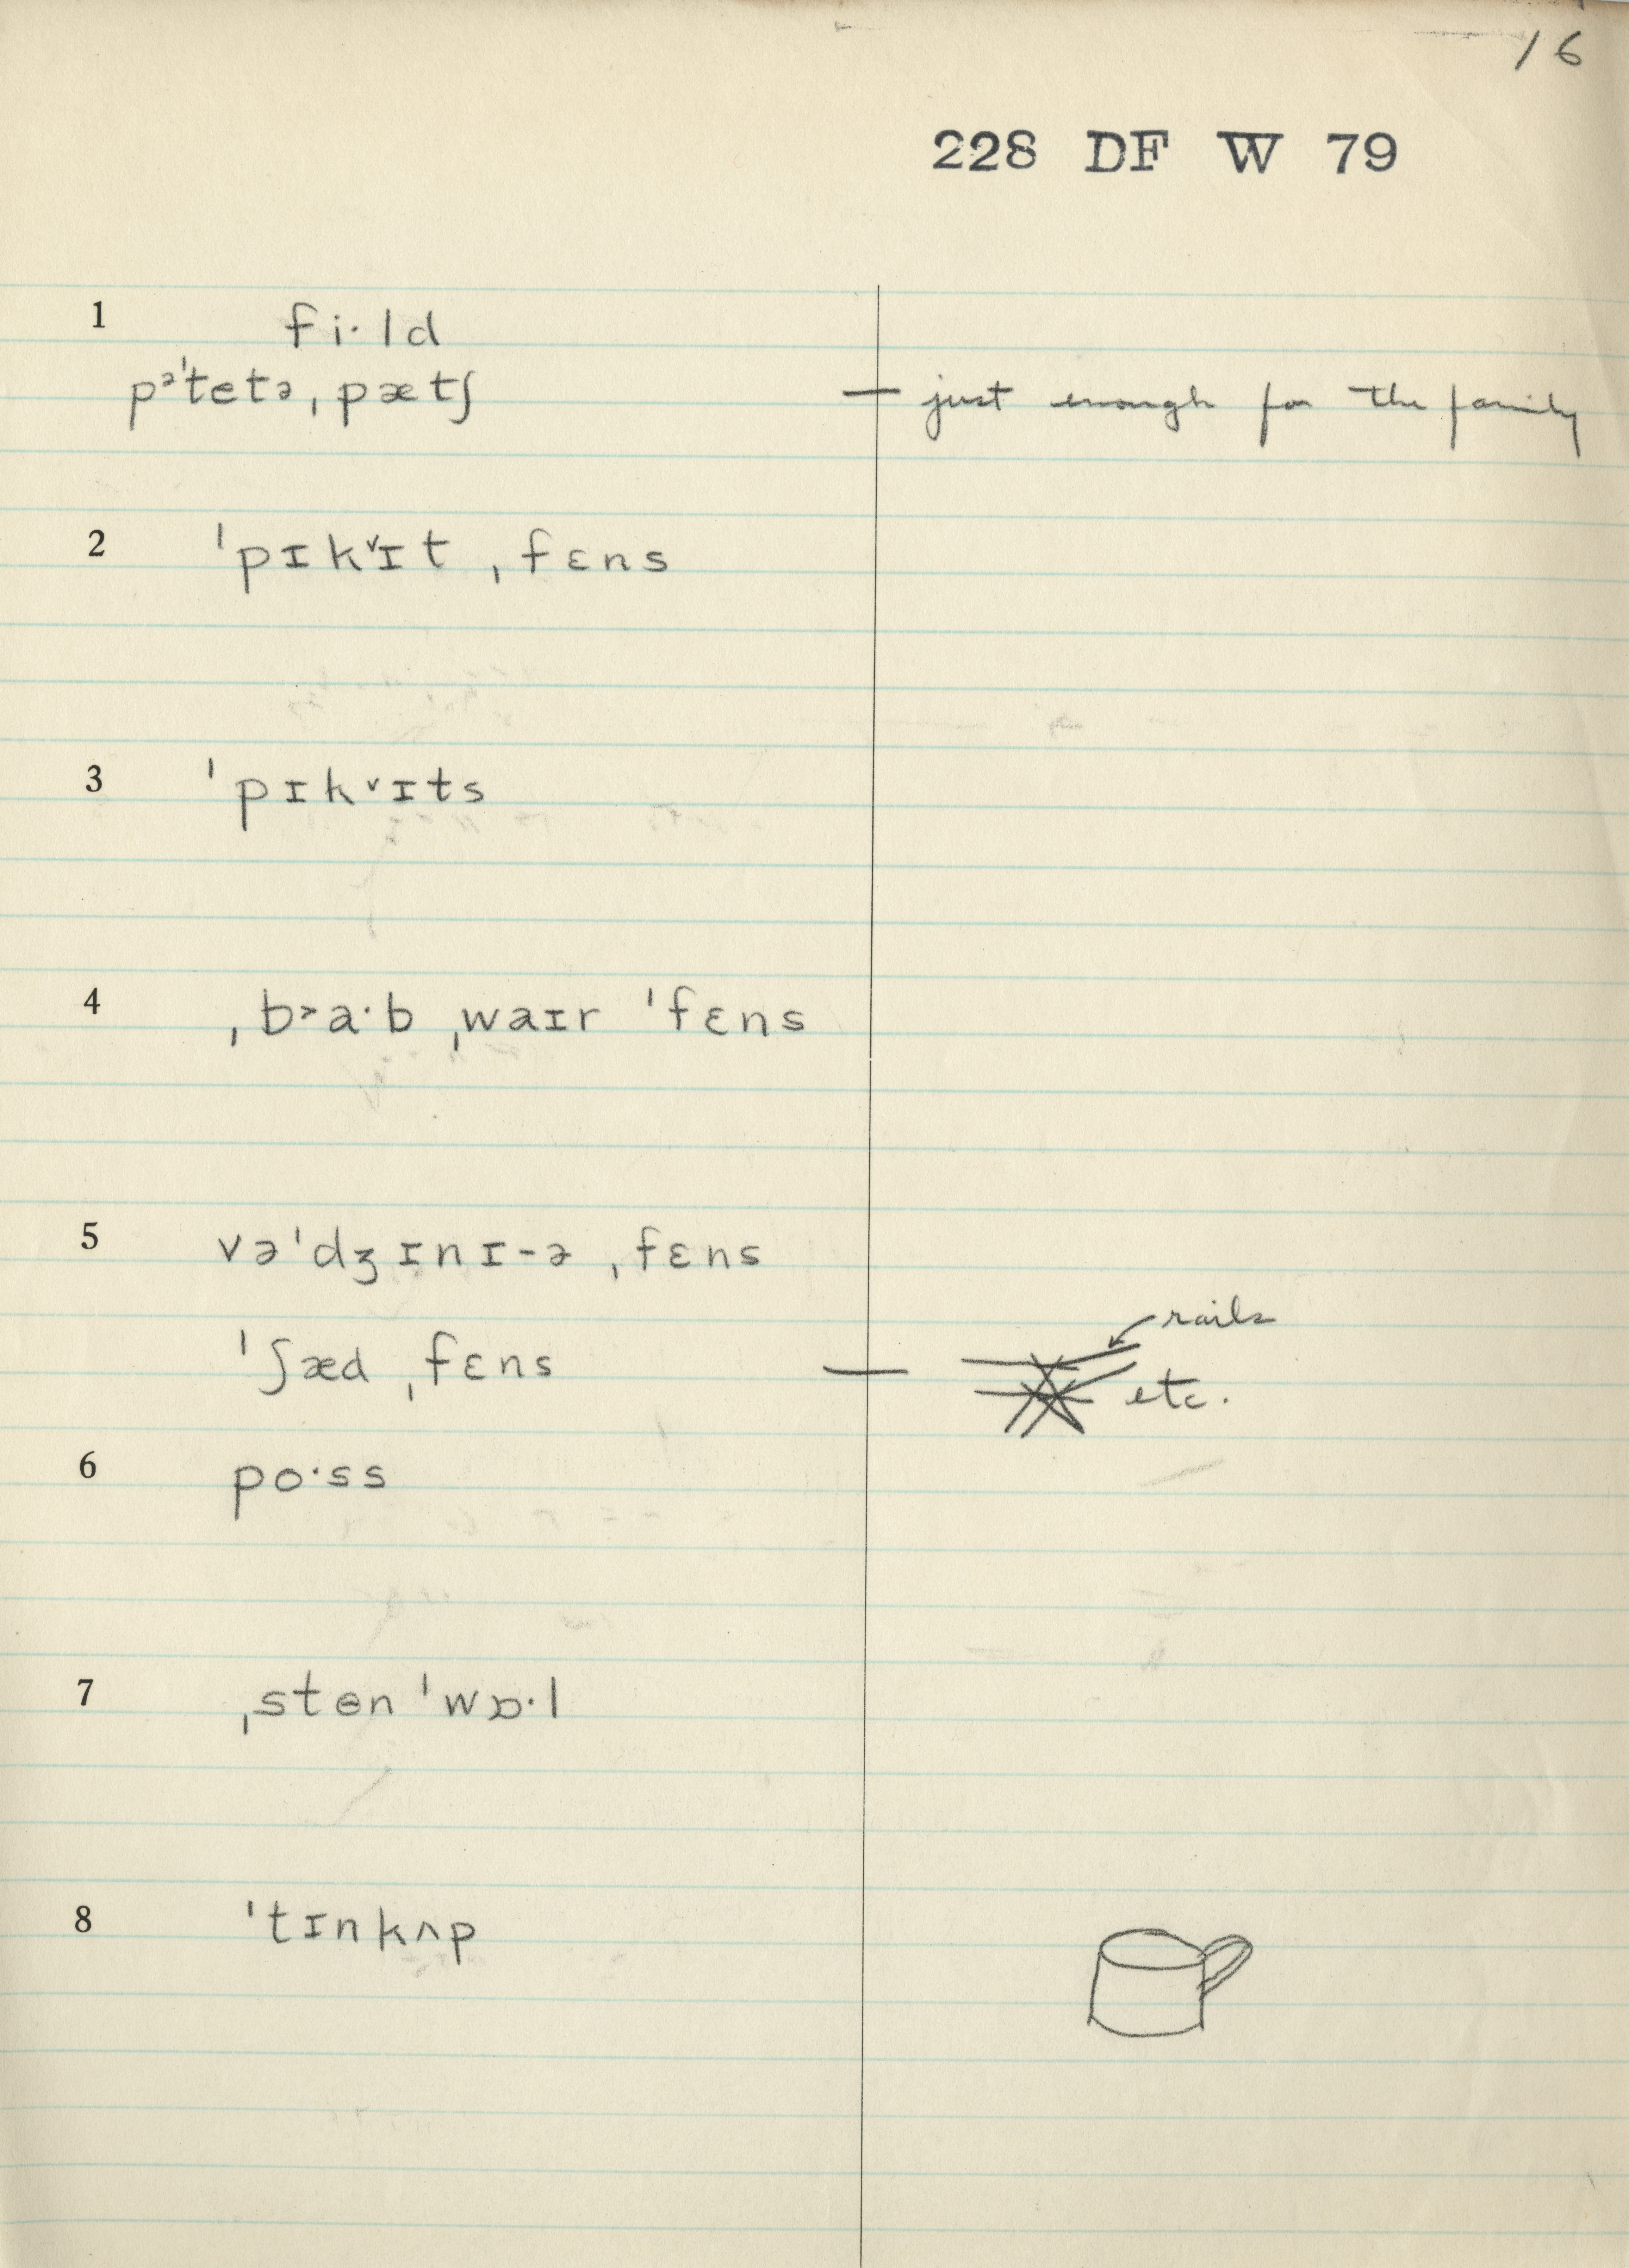 16
228 DF W 79
1 fi·ld
pᵊˈtetə ˌpætʃ — just enough for the family
2 ˈpɪk˅ɪt ˌfɛns
3 ˈpɪk˅ɪts
4 ˌb˃a·b ˌwaɪr ˈfɛns
5 vəˈdʒɪnɪ-ə ˌfɛns
rails
ˈʃæd ˌfɛns — etc.
6 po·ss
7 ˌstɵn ˈwɒ·l
8 ˈtɪnkʌp